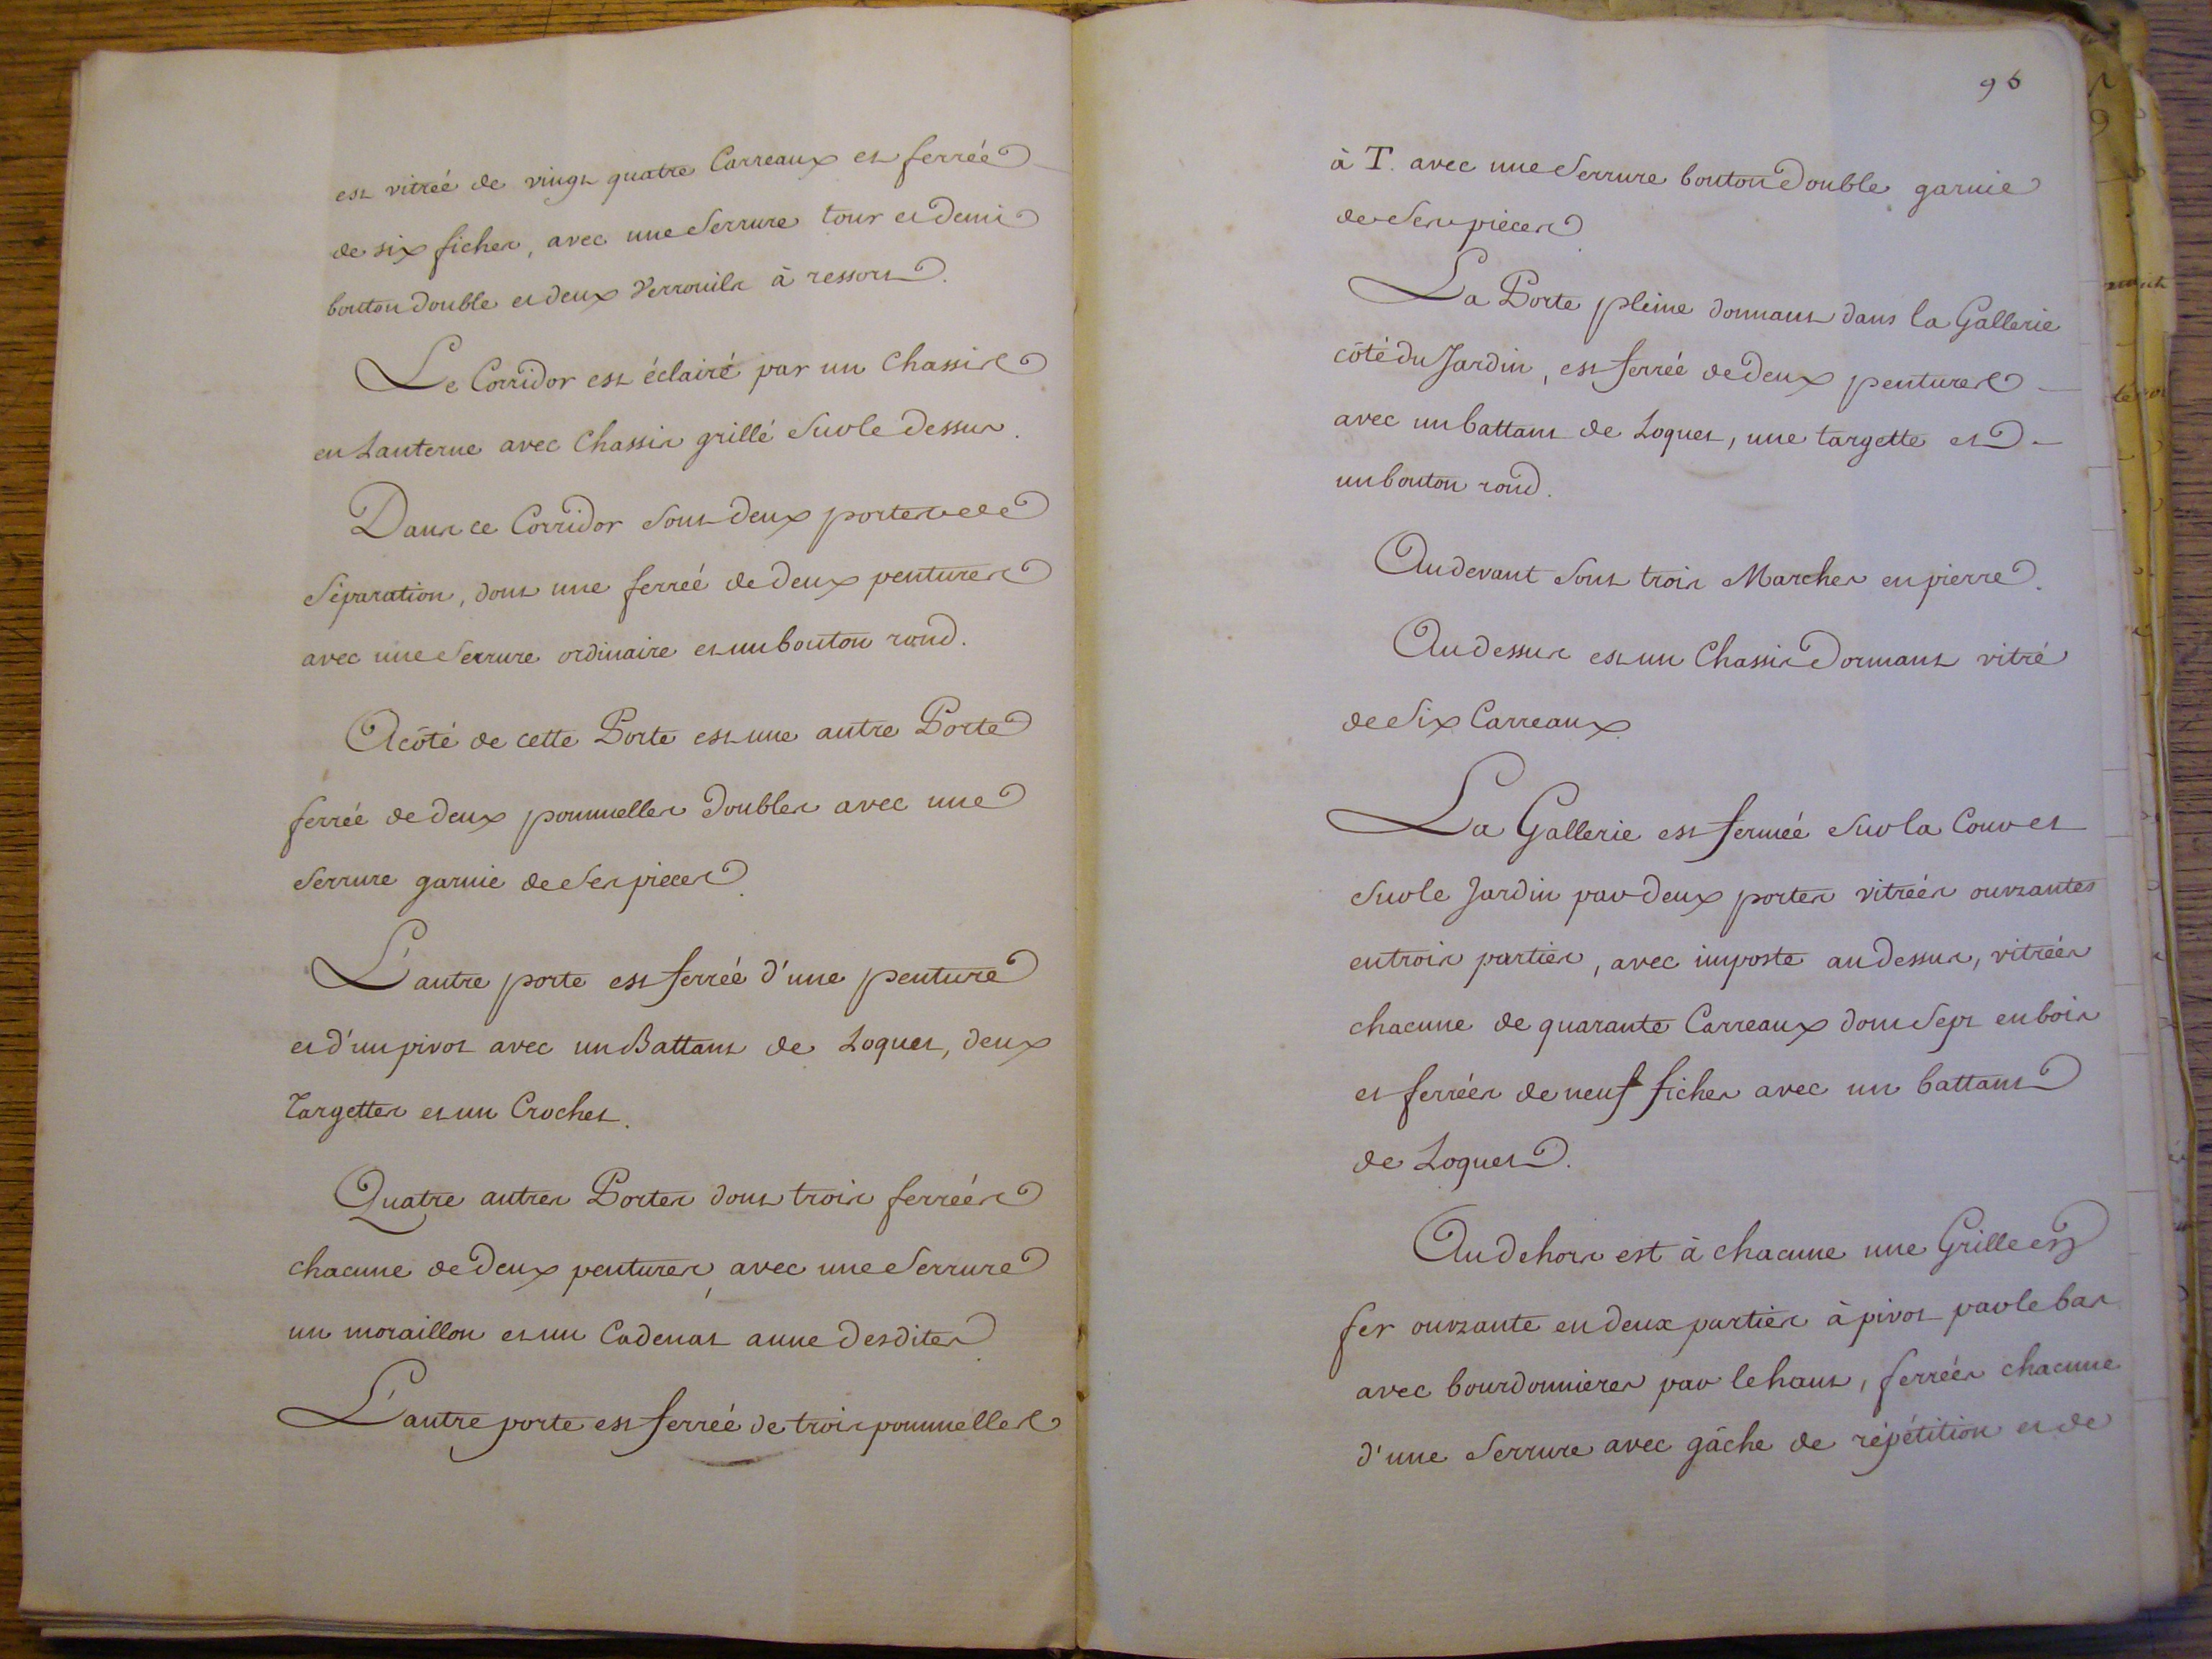 est vitreé de vingt quatre Carreaux et ferreé
de six fiches, avec une Serrure tour et demi
bouton double et deux Verrouils à ressort.
Le Corridor est éclairé par un Chassis
en Lanterne avec Chassis grillé Sur le Dessus.
Dans ce Corridor Sont deux portes de
Séparation, dont une ferreé de deux pentures
avec une Serrure ordinaire et un bouton rond.
A côté de cette Porte est une autre Porte
ferreé de deux pommelles doubles avec une
Serrure garnie de Ses pieces.
L'autre porte est ferreé d'une penture
et d'un pivot avec un Battant de Loquet, deux
Targettes et un Crochet.
Quatre autres Portes dont trois ferreés
chacune de deux pentures, avec une Serrure
un moraillon et un Cadenat a une desdites.
L'autre porte est ferreé de trois pommelles
95
à T. avec une Serrure bouton double garnie
de Ses pieces.
La Porte pleine donnant dans la Gallerie
côté du Jardin, est ferreé de deux pentures
avec un battant de Loquet, une targette et
un bouton rond.
Au devant Sont trois Marches en pierre.
Au dessus est un Chassis Dormant vitré
de Six Carreaux.
La Gallerie est fermeé Sur la Cour et
Sur le Jardin par deux portes vitreés ouvrantes
en trois parties, avec imposte au dessus, vitreés
chacune de quarante Carreaux dont Sept en bois
et ferreés de neuf fiches avec un battant
de Loquet.
Au dehors est à chacune une Grille en
fer ouvrante en deux parties à pivot par le bas
avec bourdonnieres par le haut, ferreés chacune
d'une Serrure avec gâche de répétition et de